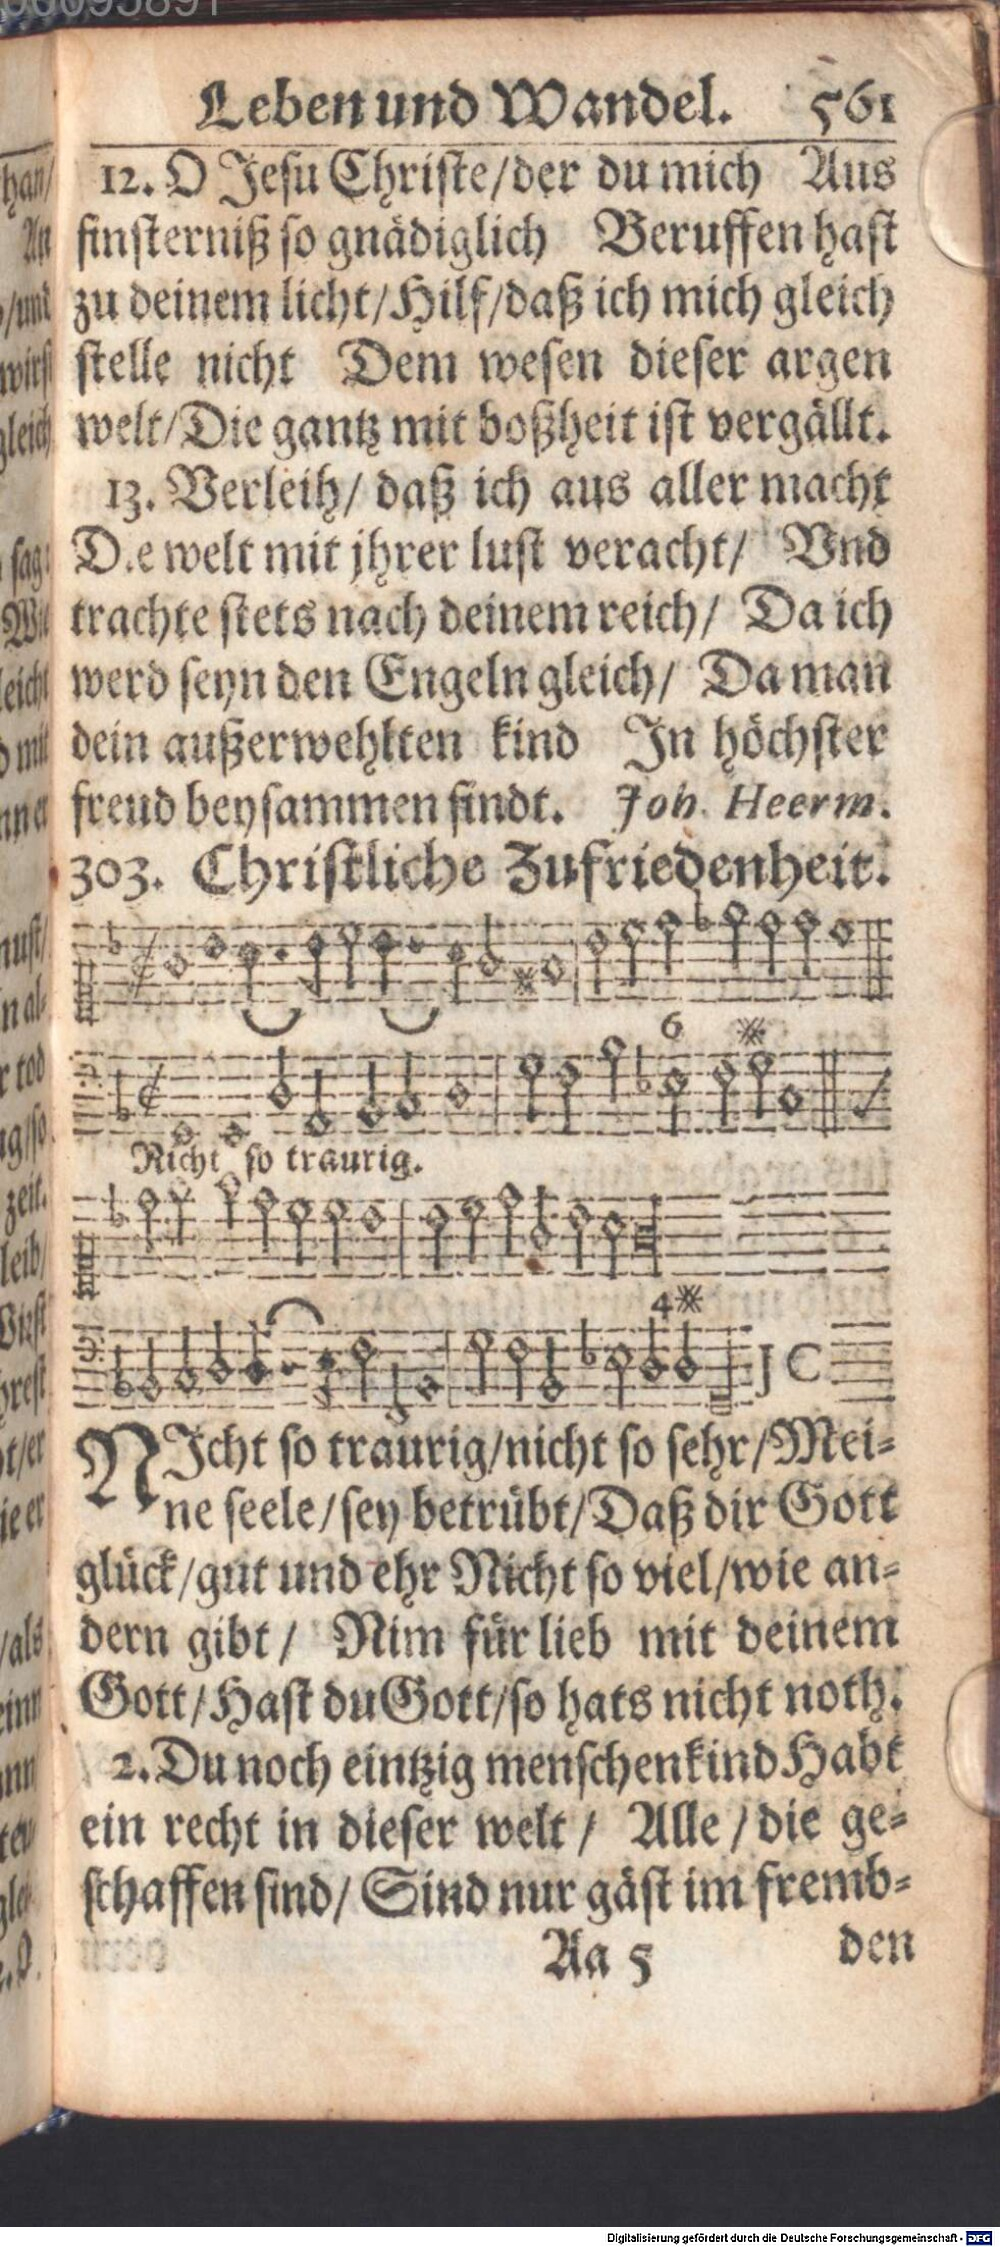 Leben und Wandel. 561
12. O Jesu Christe/der du mich Aus
finsterniß so gnädiglich Beruffen hast
zu deinem licht/Hilf/daß ich mich gleich
stelle nicht Dem wesen dieser argen
welt/Die gantz mit boßheit ist vergällt.
13. Verleih/ daß ich aus aller macht
D.e welt mit jhrer lust veracht/ Vnd
trachte stets nach deinem reich/ Da ich
werd seyn den Engeln gleich/ Da man
dein außerwehlten kind In höchster
freud beysammen findt. Joh. Heerm.
303. Christliche Zufriedenheit.
6
Nicht so traurig.
4
J C
NIcht so traurig/nicht so sehr/Mei-
ne seele/sey betrübt/Daß dir Gott
glück/gut und ehr Nicht so viel/wie an-
dern gibt/ Nim für lieb mit deinem
Gott/Hast du Gott/so hats nicht noth.
2. Du noch eintzig menschenkind Habt
ein recht in dieser welt/ Alle/die ge-
schaffen sind/ Sind nur gäst im fremb-
Aa 5 den
Digitalisierung gefördert durch die Deutsche Forschungsgemeinschaft - DFG